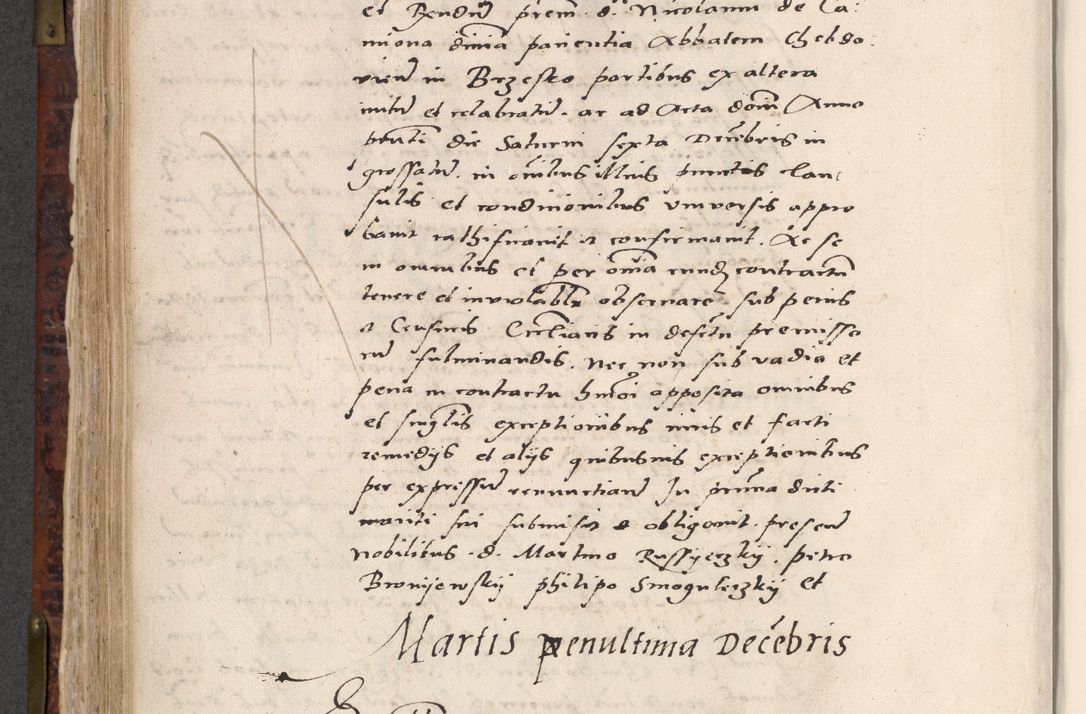 et Rendum prem d. Nicolaum de Ca:
miona divina pacientia Abbatem Chebdo
vien in Brzesko partibus ex altera
initum et celebratum. ac ad Acta domini Anno
pnti die Saturni sexta Decēbris in
grossatum. in omībus illius punctis clau
sulis et condicionibus vniversis appro
bavit rathificavit et confirmavit. Ac se
in omnibus et per omīa eund contractū
tenere et inviolablr observare. sub penis
et Censuris Ecclīaticis in defectu premisso
rum fulminandis. Nec non sub vadio et
pena in contractu hmōi apposita omnibus
et singlis exceptionibus iuris et facti
remedijs et alijs quibusvis exceptionibus
per expressum renunctiand In prima dicti
mariti sui submisit et obligavit. presen
Nobilibus. d. Martino Russyeczkij. petro
Bronijewskij philipo Smoguleczkij et
Martis penultima Decēbris